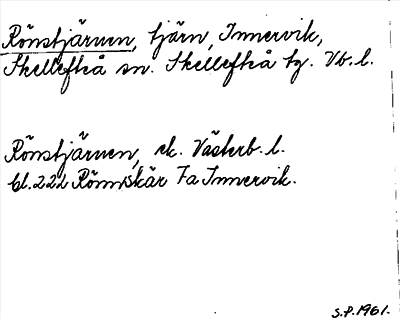 Rönstjärnen, tjärn, Innervik,
Skellefteå sn. Skellefteå tg. Vb. l.
Rönstjärnen, ek. Västerb. l.
bl. 222 Rönnskär 7a Innervik.
S.P. 1961.